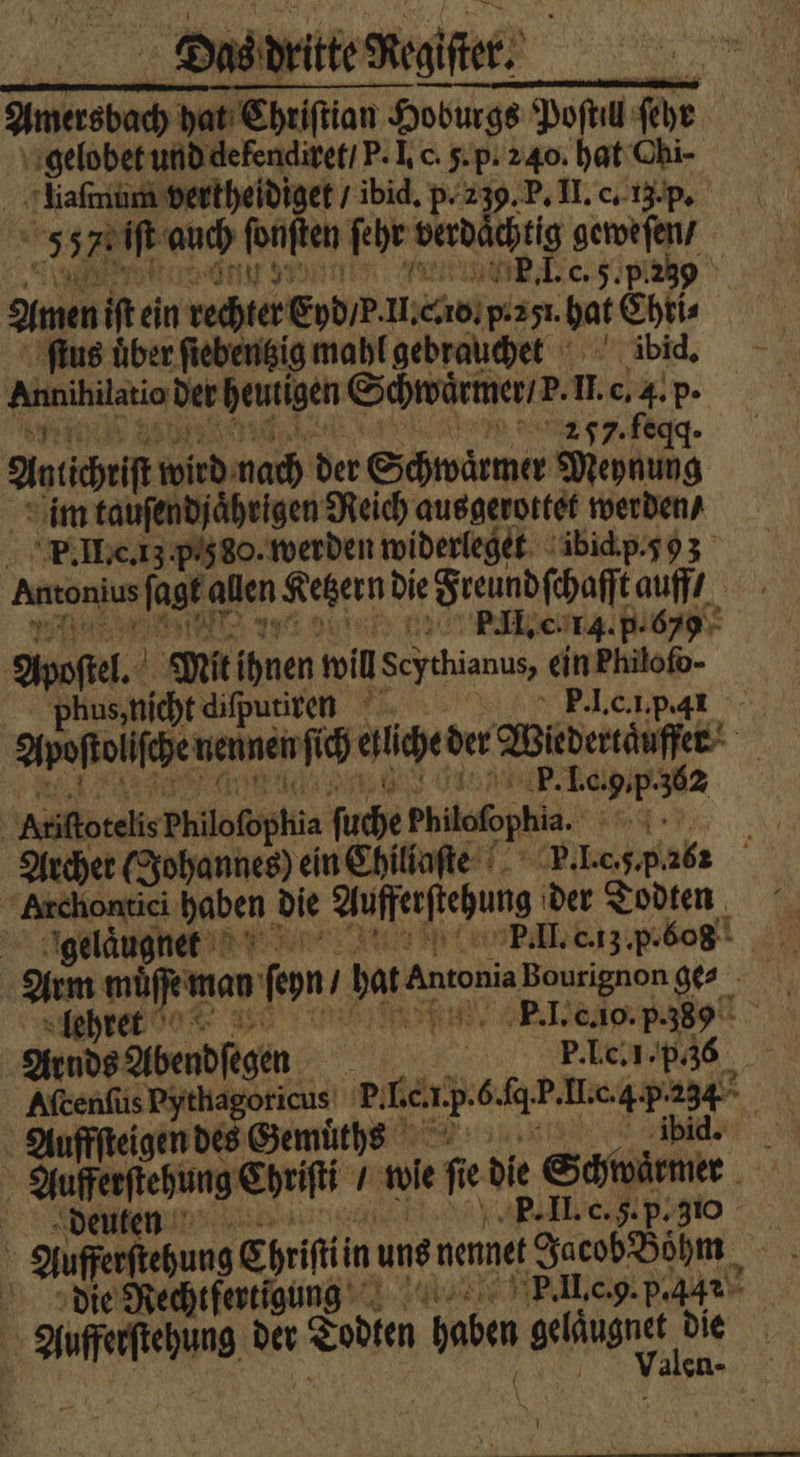 Das dritte Regiſter.
Amersbach hat Chriſtian Hoburgs Poſtill ſehr
gelobet und defendiret/ P. I, c. 5. p. 240. hat Chi-
liaſmum vertheidiget / ibid. p. 239. P. II. c. 13. p.
557. iſt auch ſonſten ſehr verdaͤchtig geweſen/
P. I. c. 5. p. 239
Amen iſt ein rechter Eyd/ P. II. c. 10. p. 251. hat Chri-
ſtus uͤber ſiebentzig mahl gebrauchet ibid.
Annihilatio der heutigen Schwaͤrmer/ P. II. c. 4. p.
257. ſeqq.
Antichriſt wird nach der Schwaͤrmer Meynung
im tauſendjaͤhrigen Reich ausgerottet werden/
P. II. c. 13. p. 580. werden widerleget ibid. p. 593
Antonius ſagt allen Ketzern die Freundſchafft auff/
P. II, c. 14. p. 679
Apoſtel. Mit ihnen will Scythianus, ein Philoſo-
phus, nicht diſputiren P. I. c. 1. p. 41
Apoſtoliſche nennen ſich etliche der Wiedertaͤuffer
P. I. c. 9. p. 362
Ariſtotelis Philoſophia ſuche Philoſophia.
Archer (Johannes) ein Chiliaſte P. I. c. 5. p. 262
Archontici haben die Aufferſtehung der Todten
gelaͤugnet P. II. c. 13. p. 608
Arm muͤſſe man ſeyn / hat Antonia Bourignon ge-
lehret P. I. c. 10. p. 389
Arnds Abendſegen P. I. c. 1. p. 36
Aſcenſus Pythagoricus P. I. c. 1. p. 6. ſq. P. II. c. 4. p. 234
Auffſteigen des Gemuͤths ibid.
Aufferſtehung Chriſti / wie ſie die Schwaͤrmer
deuten P. II. c. 5. p. 310
Aufferſtehung Chriſti in uns nennet Jacob Boͤhm
die Rechtfertigung P. II. c. 9. p. 442
Aufferſtehung der Todten haben gelaͤugnet die
Valen-